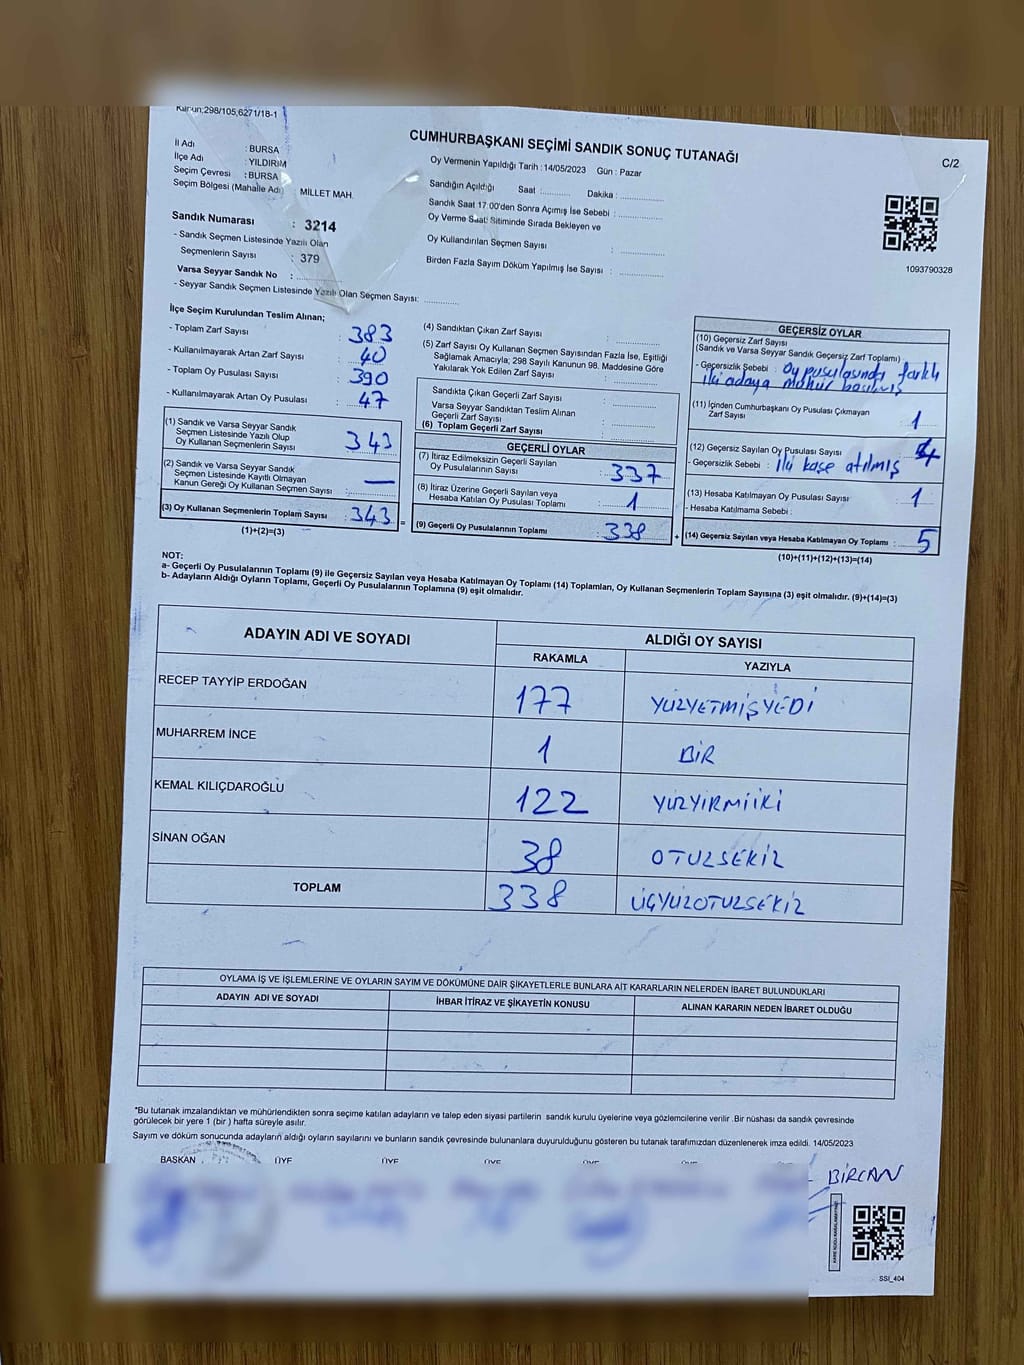 Kanun:298/105,6271/18-1
CUMHURBAŞKANI SEÇİMİ SANDIK SONUÇ TUTANAĞI
C/2
İl Adı : BURSA
İlçe Adı : YILDIRIM
Seçim Çevresi : BURSA
Seçim Bölgesi (Mahalle Adı) : MİLLET MAH.
Sandık Numarası : 3214
- Sandık Seçmen Listesinde Yazılı Olan
Seçmenlerin Sayısı : 379
Varsa Seyyar Sandık No :
- Seyyar Sandık Seçmen Listesinde Yazılı Olan Seçmen Sayısı:
Oy Vermenin Yapıldığı Tarih :14/05/2023 Gün : Pazar
Sandığın Açıldığı Saat : Dakika :
Sandık Saat 17:00'den Sonra Açımış İse Sebebi :
Oy Verme Saati Bitiminde Sırada Bekleyen ve
Oy Kullandırılan Seçmen Sayısı :
Birden Fazla Sayım Döküm Yapılmış İse Sayısı :
1093790328
İlçe Seçim Kurulundan Teslim Alınan;
- Toplam Zarf Sayısı : 383
- Kullanılmayarak Artan Zarf Sayısı : 40
- Toplam Oy Pusulası Sayısı : 390
- Kullanılmayarak Artan Oy Pusulası : 47
(1) Sandık ve Varsa Seyyar Sandık
Seçmen Listesinde Yazılı Olup
Oy Kullanan Seçmenlerin Sayısı : 343
(2) Sandık ve Varsa Seyyar Sandık
Seçmen Listesinde Kayıtlı Olmayan
Kanun Gereği Oy Kullanan Seçmen Sayısı : —
(3) Oy Kullanan Seçmenlerin Toplam Sayısı : 343 =
(1)+(2)=(3)
(4) Sandıktan Çıkan Zarf Sayısı :
(5) Zarf Sayısı Oy Kullanan Seçmen Sayısından Fazla İse, Eşitliği
Sağlamak Amacıyla; 298 Sayılı Kanunun 98. Maddesine Göre
Yakılarak Yok Edilen Zarf Sayısı :
Sandıkta Çıkan Geçerli Zarf Sayısı :
Varsa Seyyar Sandıktan Teslim Alınan
Geçerli Zarf Sayısı :
(6) Toplam Geçerli Zarf Sayısı :
GEÇERLİ OYLAR
(7) İtiraz Edilmeksizin Geçerli Sayılan
Oy Pusulalarının Sayısı : 337
(8) İtiraz Üzerine Geçerli Sayılan veya
Hesaba Katılan Oy Pusulası Toplamı : 1
(9) Geçerli Oy Pusulalarının Toplamı : 338 +
GEÇERSİZ OYLAR
(10) Geçersiz Zarf Sayısı
(Sandık ve Varsa Seyyar Sandık Geçersiz Zarf Toplamı) :
- Geçersizlik Sebebi : Oy pusulasında farklı
iki adaya mühür basılmış
(11) İçinden Cumhurbaşkanı Oy Pusulası Çıkmayan
Zarf Sayısı : 1
(12) Geçersiz Sayılan Oy Pusulası Sayısı :
- Geçersizlik Sebebi : iki kaşe atılmış
(13) Hesaba Katılmayan Oy Pusulası Sayısı : 1
- Hesaba Katılmama Sebebi :
(14) Geçersiz Sayılan veya Hesaba Katılmayan Oy Toplamı : 5
(10)+(11)+(12)+(13)=(14)
NOT:
a- Geçerli Oy Pusulalarının Toplamı (9) ile Geçersiz Sayılan veya Hesaba Katılmayan Oy Toplamı (14) Toplamları, Oy Kullanan Seçmenlerin Toplam Sayısına (3) eşit olmalıdır. (9)+(14)=(3)
b- Adayların Aldığı Oyların Toplamı, Geçerli Oy Pusulalarının Toplamına (9) eşit olmalıdır.
ADAYIN ADI VE SOYADI
ALDIĞI OY SAYISI
RAKAMLA YAZIYLA
RECEP TAYYİP ERDOĞAN 177 YÜZYETMİŞYEDİ
MUHARREM İNCE 1 BİR
KEMAL KILIÇDAROĞLU 122 YÜZYİRMİİKİ
SİNAN OĞAN 38 OTUZSEKİZ
TOPLAM 338 ÜÇYÜZOTUZSEKİZ
OYLAMA İŞ VE İŞLEMLERİNE VE OYLARIN SAYIM VE DÖKÜMÜNE DAİR ŞİKAYETLERLE BUNLARA AİT KARARLARIN NELERDEN İBARET BULUNDUKLARI
ADAYIN ADI VE SOYADI İHBAR İTİRAZ VE ŞİKAYETİN KONUSU ALINAN KARARIN NEDEN İBARET OLDUĞU
"Bu tutanak imzalandıktan ve mühürlendikten sonra seçime katılan adayların ve talep eden siyasi partilerin sandık kurulu üyelerine veya gözlemcilerine verilir .Bir nüshası da sandık çevresinde
görülecek bir yere 1 (bir ) hafta süreyle asılır.
Sayım ve döküm sonucunda adayların aldığı oyların sayılarını ve bunların sandık çevresinde bulunanlara duyurulduğunu gösteren bu tutanak tarafımızdan düzenlenerek imza edildi. 14/05/2023
BAŞKAN ÜYE ÜYE ÜYE ÜYE ÜYE
BİRCAN
SSI_404